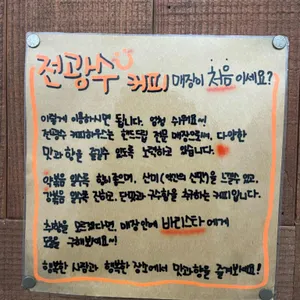 전광수 커피 매장이 처음 이세요?
이렇게 이용하시면 됩니다. 엄청 쉬워요~!
전광수 커피하우스는 핸드드립 전문 매장으로써, 다양한
맛과 향을 즐길수 있도록 노력하고 있습니다.
약볶음 일수록 향이 좋으며, 산미(약간의 신맛)을 느낄수 있고,
강볶음 일수록 진하고, 단맛과 구수함을 추구하는 커피입니다.
초행길 이시라면, 매장안에 바리스타에게
도움을 구해보세요~!
행복한 사람과 행복한 장소에서 맛과향을 즐겨보세요!